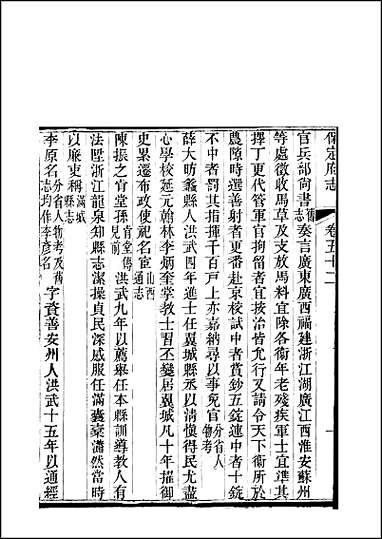 保定府志 卷五十二 一
官兵部尚書舊志奏言廣東廣西福建浙江湖廣江西淮安蘇州
等處徵收馬草及支放馬料宜除各衞年老殘疾軍士宜準其
擇丁更代管軍官拘留者宜按治皆允行又請令天下衞所於
農隙時選善射者更番赴京校試中者賞鈔五錠連中者十錠
不中者罰其指揮千百戶上亦嘉納尋以事免官分省人物考
薛大昉蠡縣人洪武四年進士任翼城縣丞以清愼得民尤盡
心學校延元翰林李炳奎掌教士習丕變居翼城凡十年擢御
史累遷布政使祀名宦山西通志
陳振之肯堂孫肯堂傳見前洪武九年以薦舉任本縣訓導教人有
法陞浙江龍泉知縣志潔操貞民深感服任滿囊橐瀟然當時
以廉吏稱滿城縣志
李原名分省人物考及舊志均作李彥名字資善安州人洪武十五年以通經